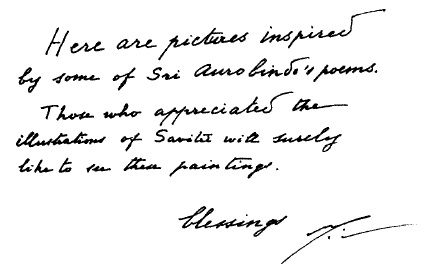 Here are pictures inspired
by some of Sri Aurobindo's poems.
Those who appreciated the
illustrations of Savitri will surely
like to see these paintings.
blessings